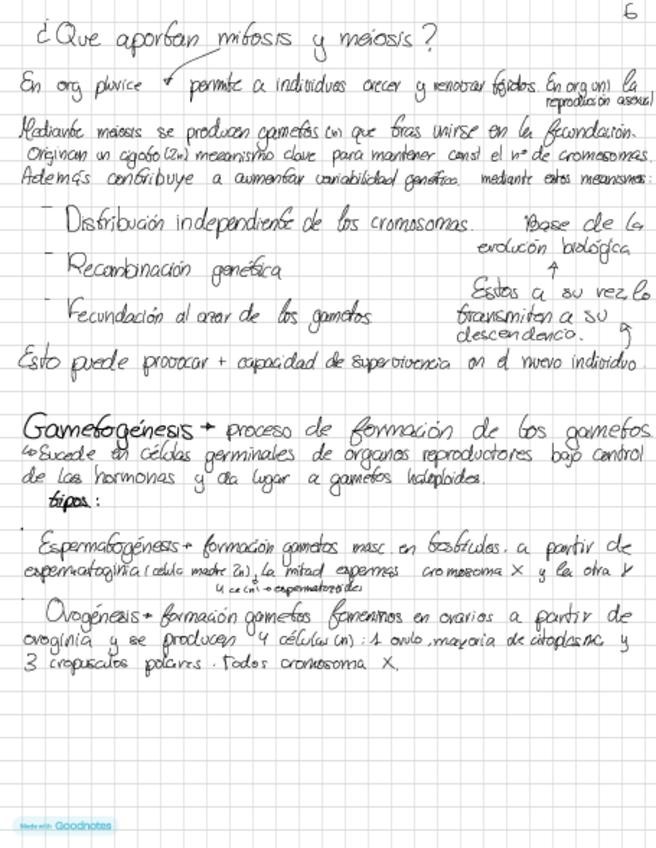 6
¿Que aportan mitosis y meiosis?
En org pluvice → permite a individuos crecer y renovar tejidos. En org uni la
reproducción asexual
Mediante meiosis se producen gametos (n) que tras unirse en la fecundación.
Originan un cigoto (2n) mecanismo clave para mantener const el nº de cromosomas.
Además contribuye a aumentar variabilidad genética. mediante estos mecanismos:
- Distribución independiente de los cromosomas.
- Recombinación genética
- Fecundación al azar de los gametos
Base de la
evolución biológica
↑
Estos a su vez lo
transmiten a su
descendencia.
Esto puede provocar + capacidad de supervivencia en el nuevo individuo
Gametogénesis → proceso de formación de los gametos
↳ Sucede en células germinales de organos reproductores bajo control
de las hormonas y da lugar a gametos haloploides.
tipos:
Espermatogénesis → formación gametos masc en testículos. a partir de
espermatoginia (celula madre 2n), La mitad espermas cromosoma X y la otra Y
4 ce(n) → espermatozoides
Ovogénesis → formación gametos femeninos en ovarios a partir de
ovoginia y se producen 4 células (n): 1 ovulo, mayoria de citoplasma y
3 cropusculos polares. Todos cromosoma X.
Made with Goodnotes